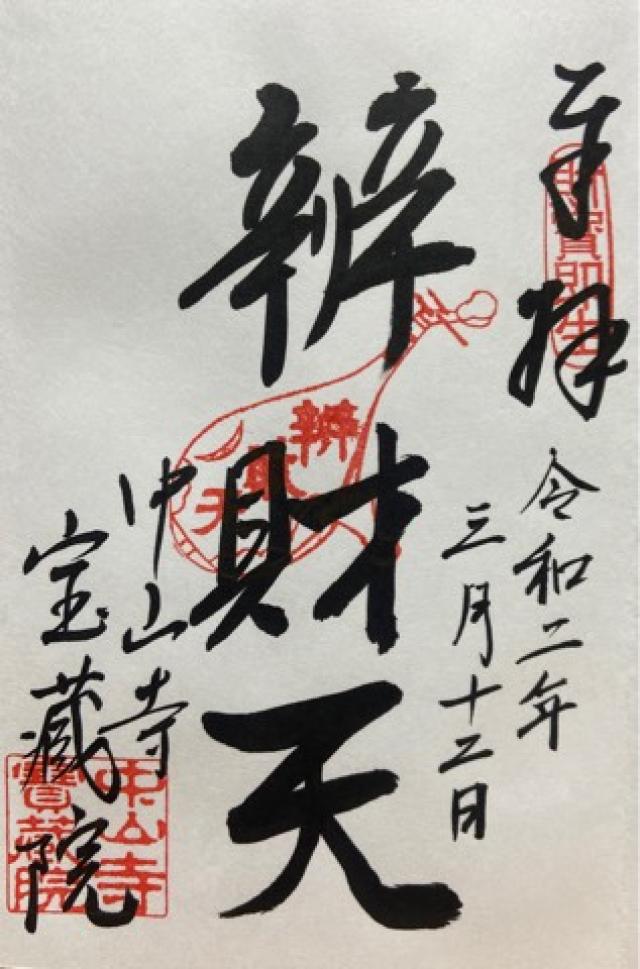 奉拝
令和二年
三月十二日
辨財天
辨財天
中山寺
宝蔵院
中山寺
寶蔵院